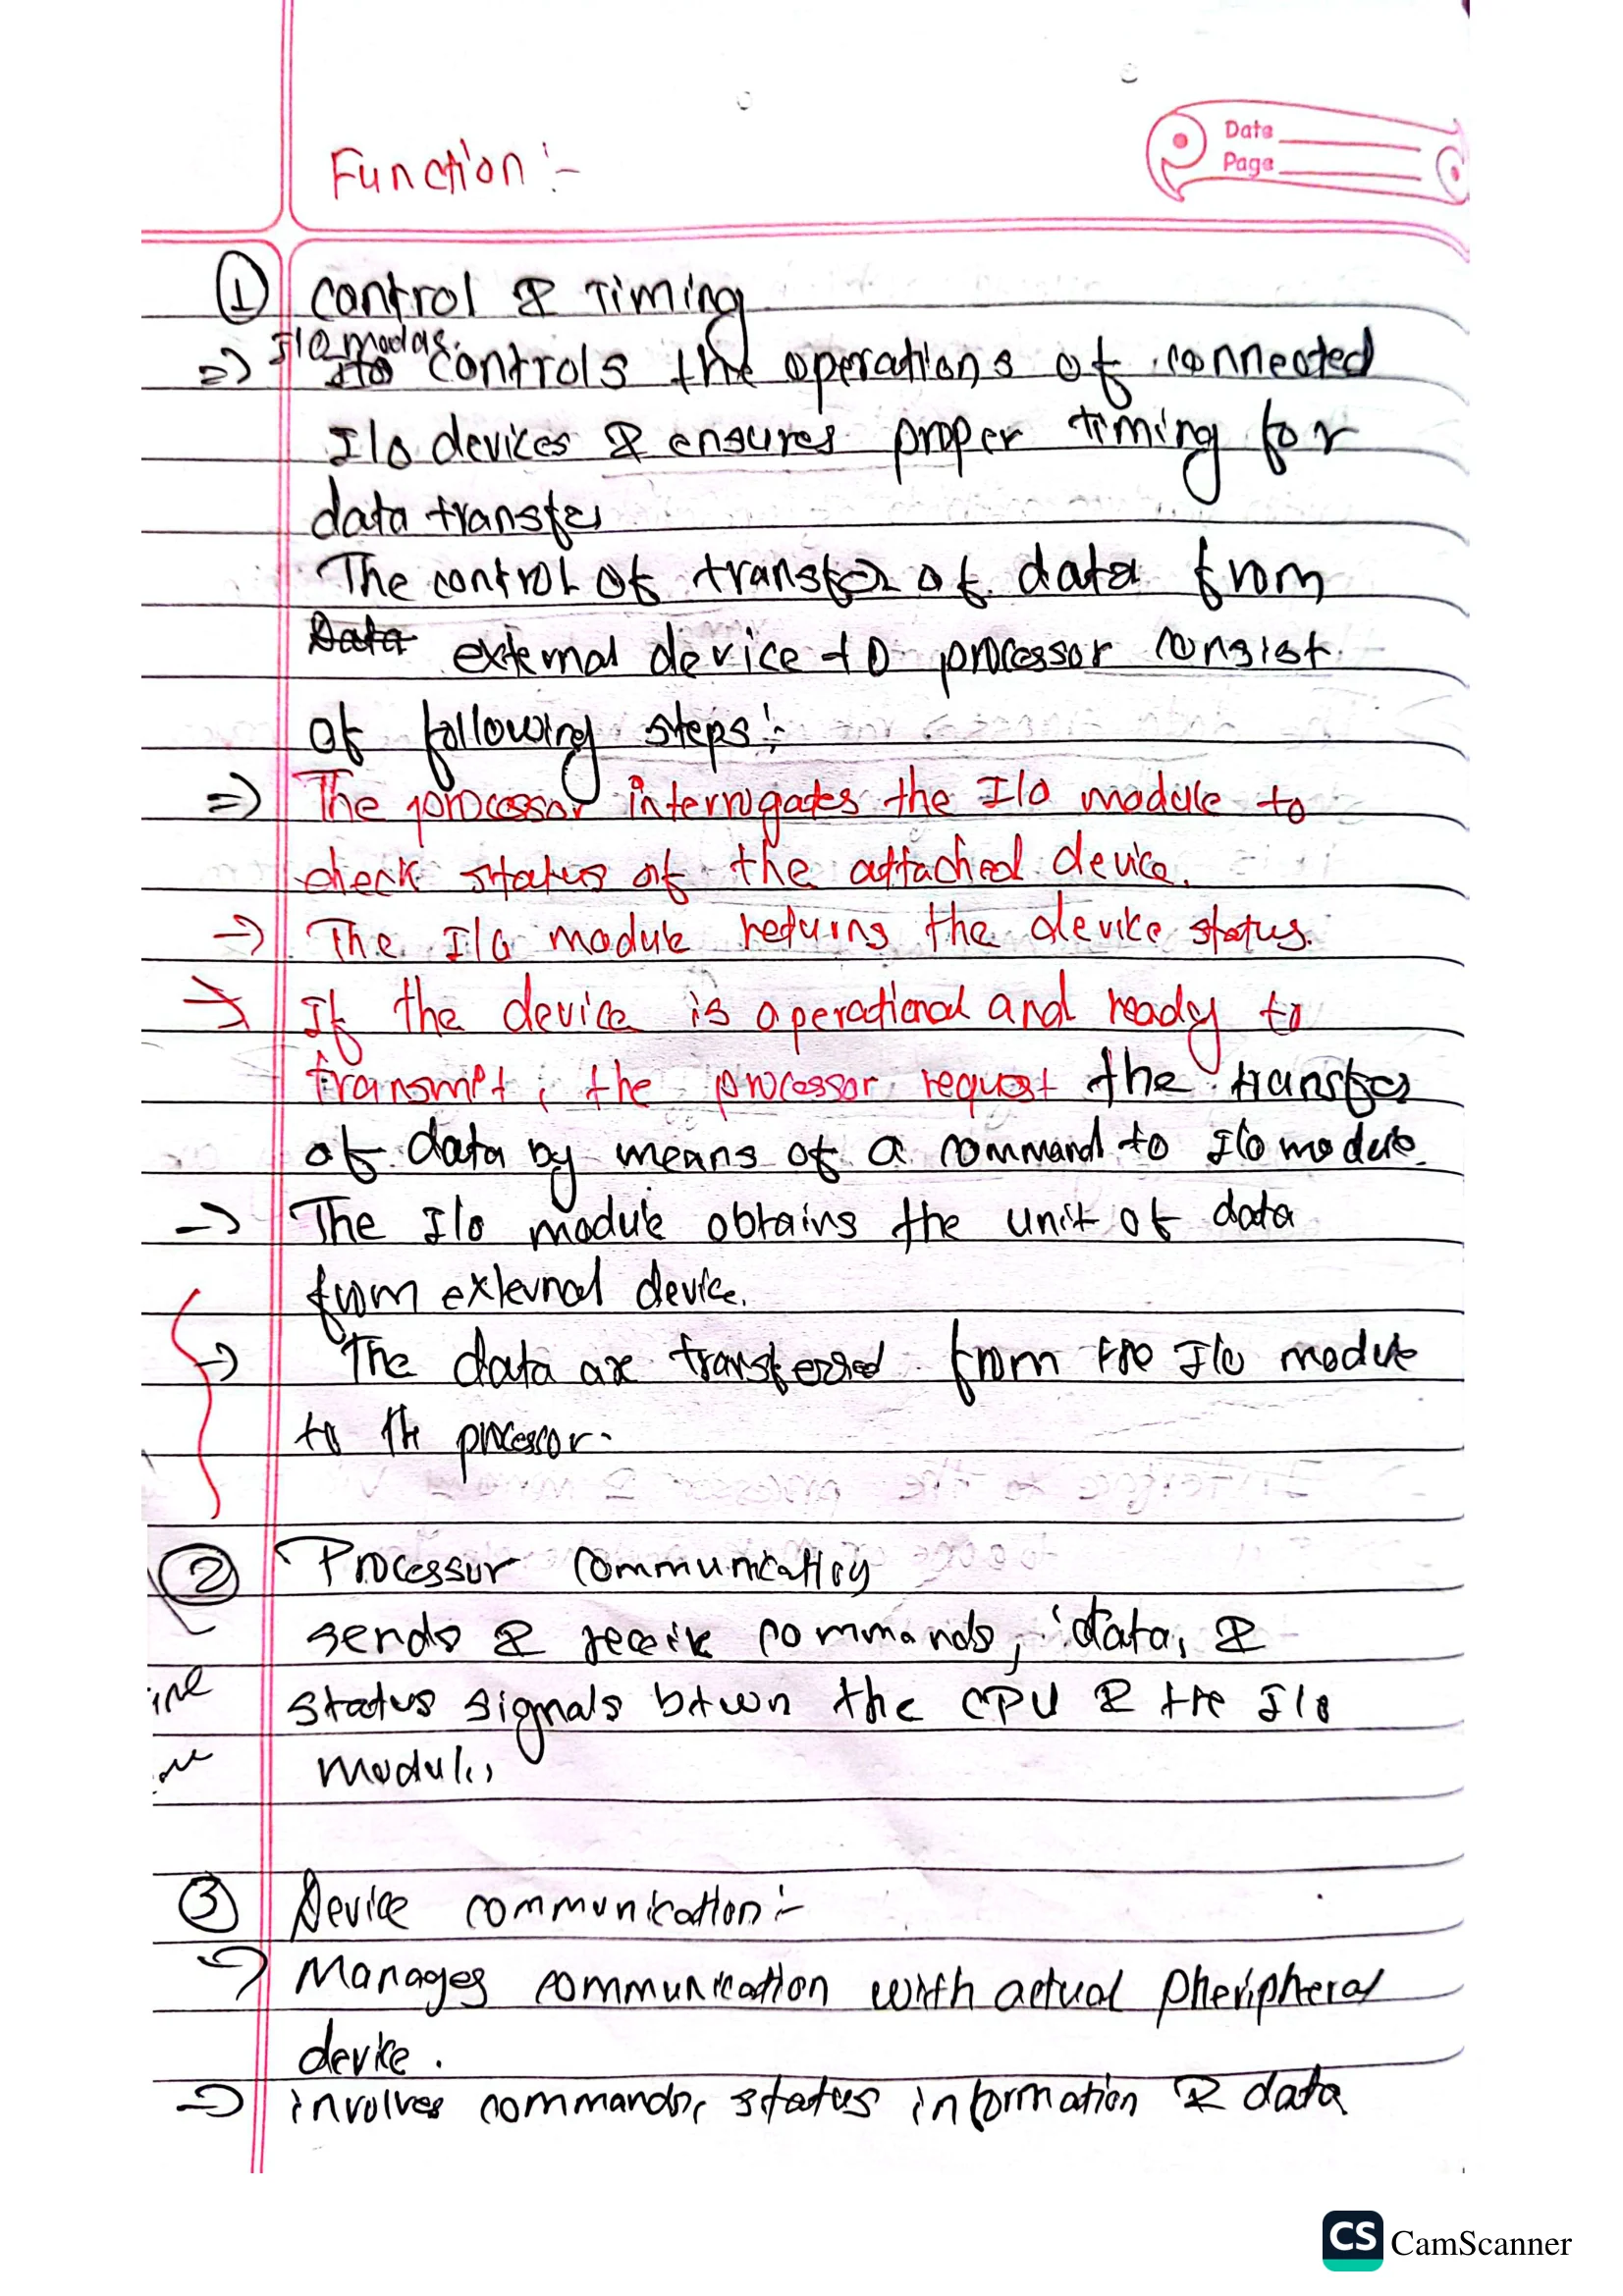 Date
Page
Function :-
① Control & Timing
I/O modas.
=> controls the operations of connected
I/o devices & ensures proper timing for
data transfer
The control of transfer of data from
Data external device to processor consist
of following steps :-
=> The processor interrogates the I/o module to
check status of the attached device.
-> The I/o module returns the device status.
-> If the device is operational and ready to
transmit, the processor request the transfer
of data by means of a command to I/o module.
-> The I/o module obtains the unit of data
from external device.
-> The data are transferred from the I/o module
to the processor.
② Processor communication
sends & receive commands, data, &
status signals btwn the CPU & the I/o
module,
③ Device communication :-
-> Manages communication with actual Pheripheral
device.
-> involves commands, status information & data
CS CamScanner